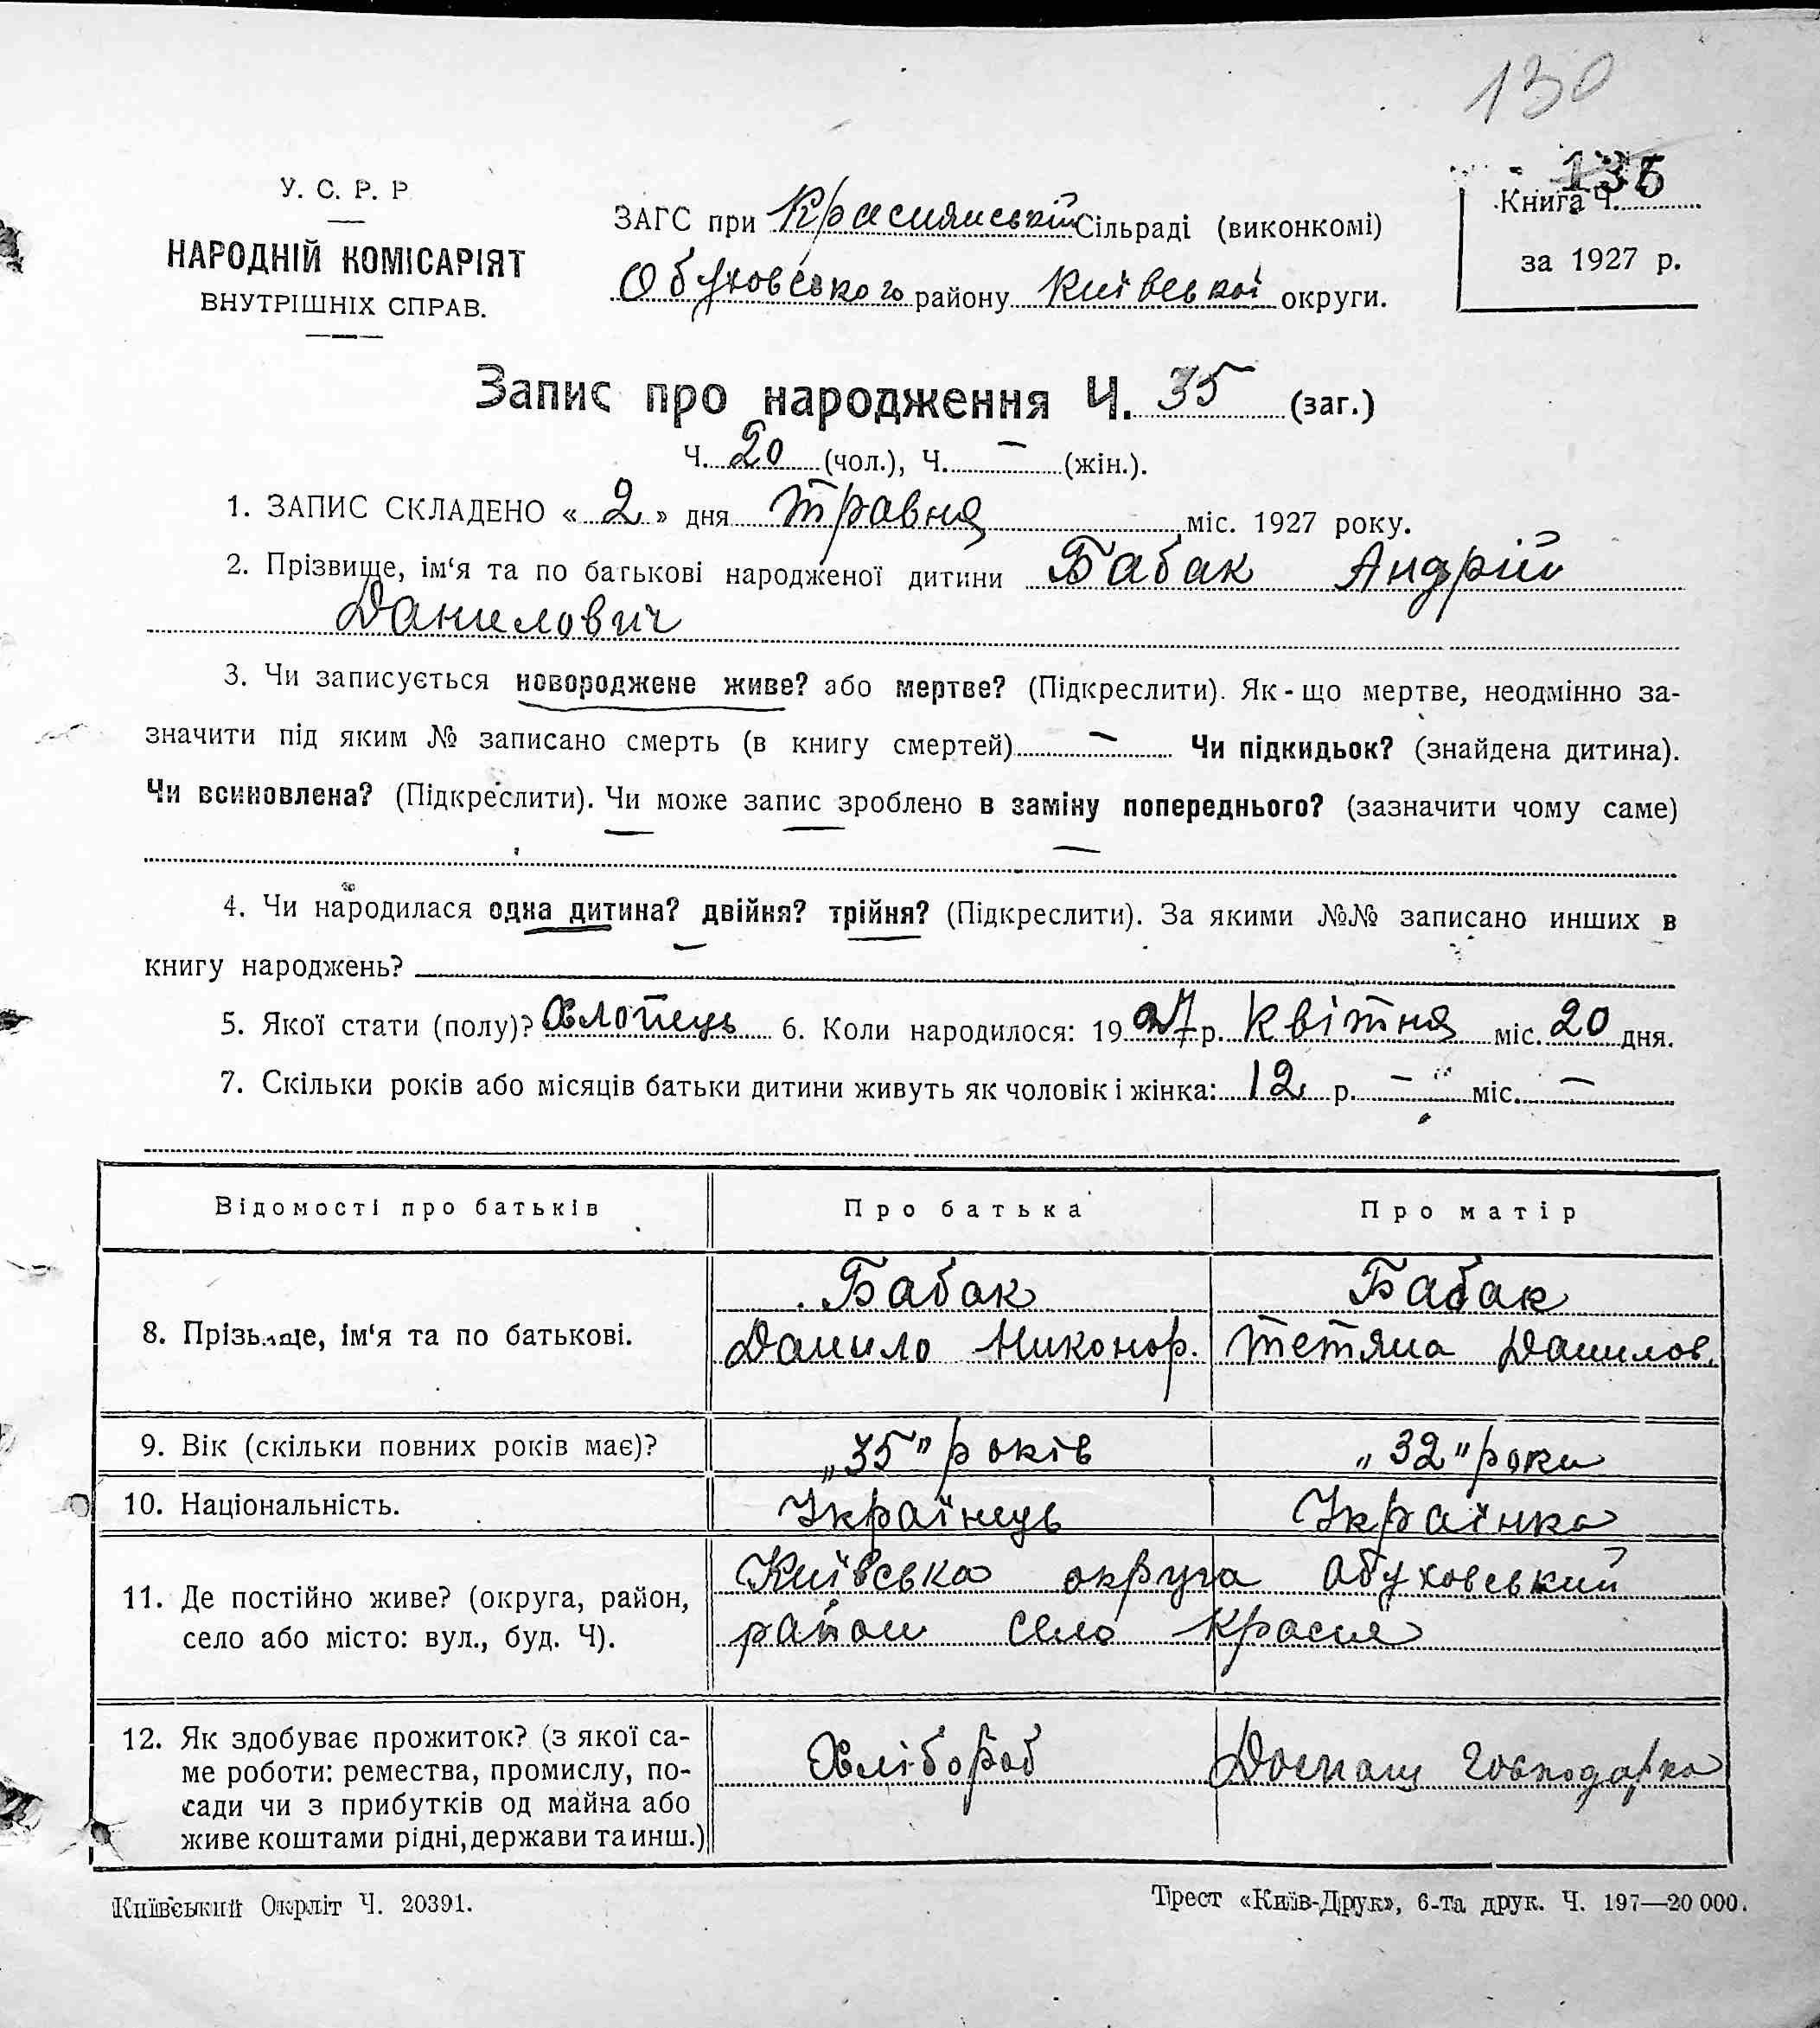 130
У. С. Р. Р
НАРОДНІЙ КОМІСАРІЯТ
ВНУТРІШНІХ СПРАВ.
ЗАГС при Краснянській Сільраді (виконкомі)
Обуховського району Київської округи.
Книга Ч.
за 1927 р.
Запис про народження Ч. 35 (заг.)
Ч. 20 (чол.), Ч. — (жін.).
1. ЗАПИС СКЛАДЕНО « 2 » дня Травня міс. 1927 року.
2. Прізвище, ім‘я та по батькові народженої дитини Бабак Андрій
Данилович
3. Чи записується новороджене живе? або мертве? (Підкреслити). Як-що мертве, неодмінно за-
значити під яким № записано смерть (в книгу смертей) — Чи підкидьок? (знайдена дитина).
Чи всиновлена? (Підкреслити). Чи може запис зроблено в заміну попереднього? (зазначити чому саме)
—
4. Чи народилася одна дитина? двійня? трійня? (Підкреслити). За якими №№ записано инших в
книгу народжень?
5. Якої стати (полу)? Хлопець 6. Коли народилося: 1927 р. Квітня міс. 20 дня.
7. Скільки років або місяців батьки дитини живуть як чоловік і жінка: 12 р. — міс. —
Відомості про батьків Про батька Про матір
Бабак Бабак
8. Прізьвище, ім‘я та по батькові. Данило Никонор. Тетяна Данилов.
9. Вік (скільки повних років має)? „35” років „32” роки
10. Національність. Українець Українка
Київська округа Обуховський
11. Де постійно живе? (округа, район,
район село Красне
село або місто: вул., буд. Ч).
12. Як здобуває прожиток? (з якої са-
ме роботи: ремества, промислу, по- Хлібороб Домаш господарка
сади чи з прибутків од майна або
живе коштами рідні, держави та инш.)
Київський Окрліт Ч. 20391.
Трест «Київ-Друк», 6-та друк. Ч. 197—20 000.